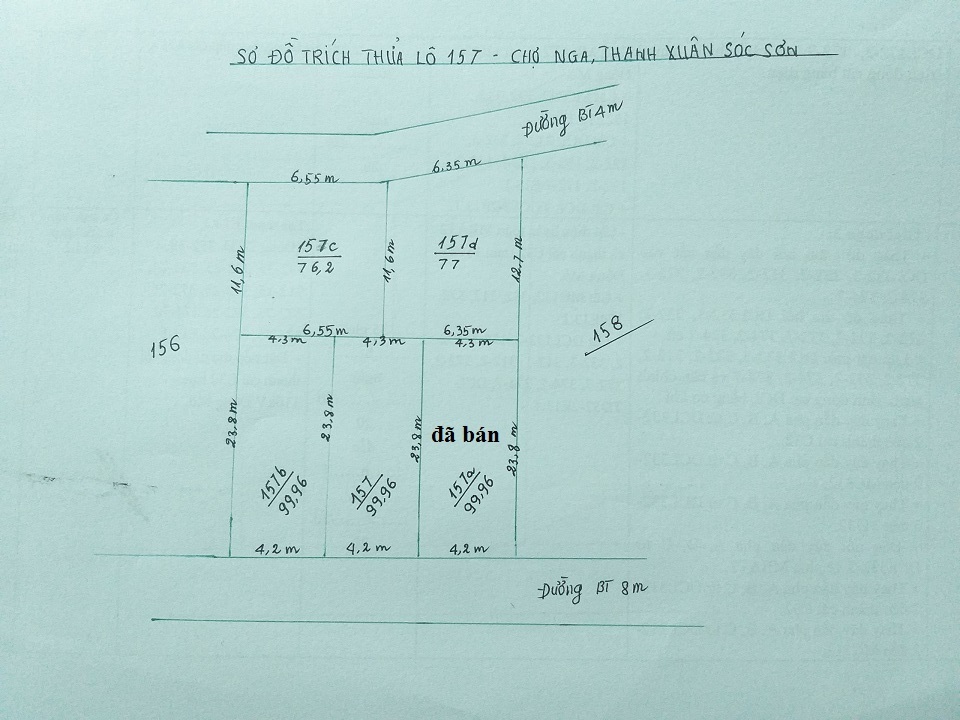 SƠ ĐỒ TRÍCH THỬA LÔ 157 - CHỢ NGA, THANH XUÂN SÓC SƠN
Đường BT 4m
6,55 m
6,35 m
11,6 m
157c
76,2
11,6 m
157d
77
12,7 m
156
158
6,55 m
6,35 m
4,3 m
4,3 m
4,3 m
23,8 m
23,8 m
23,8 m
đã bán
23,8 m
157b
99,96
157
99,96
157a
99,96
4,2 m
4,2 m
4,2 m
Đường BT 8m